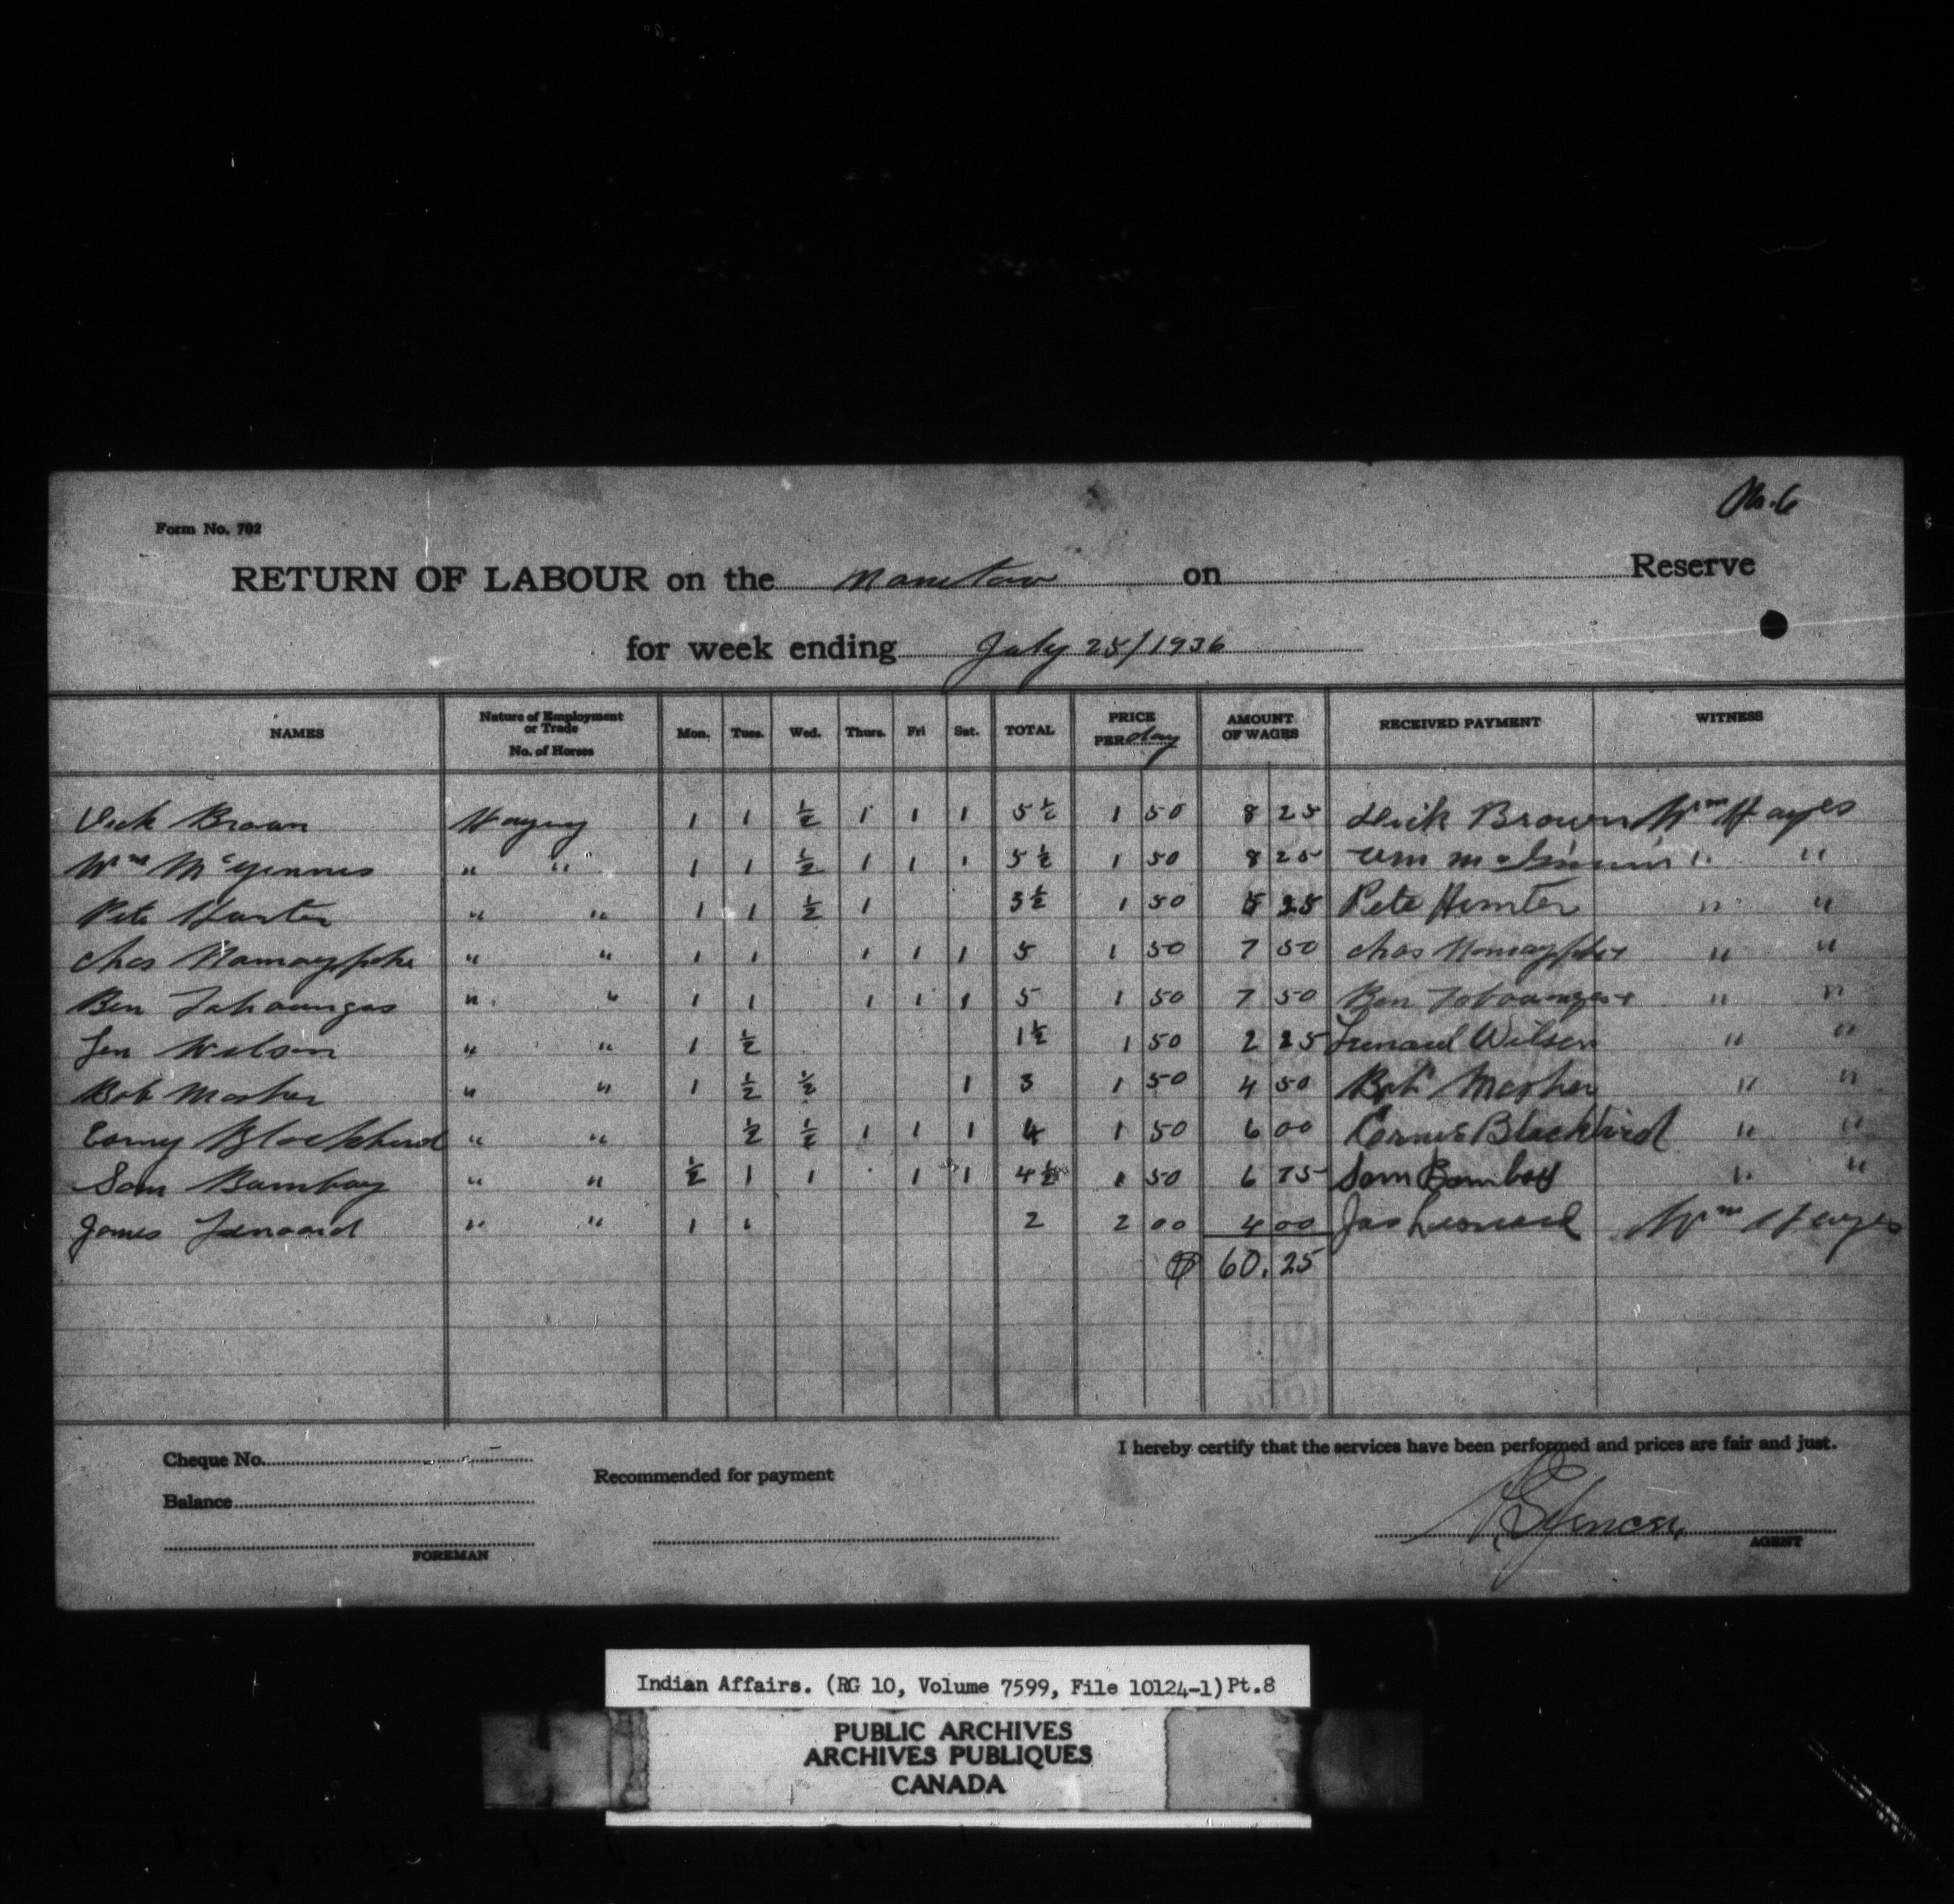 No. 6
Form No. 702
RETURN OF LABOUR on the Manitou on Reserve
for week ending July 25/1936
NAMES Nature of Employment or Trade No. of Horses Mon. Tues. Wed. Thurs. Fri Sat. TOTAL PRICE PER day AMOUNT OF WAGES RECEIVED PAYMENT WITNESS
Dick Brown Haying 1 1 ½ 1 1 1 5½ 1 50 8 25 Dick Brown Wm Hayes
Wm McGinnis " " 1 1 ½ 1 1 1 5½ 1 50 8 25 Wm McGinnis " "
Pete Hunter " " 1 1 ½ 1 3½ 1 50 5 25 Pete Hunter " "
Chas " " 1 1 1 1 1 5 1 50 7 50 Chas " "
Ben " " 1 1 1 1 1 5 1 50 7 50 Ben " "
Len Wilson " " 1 ½ 1½ 1 50 2 25 Lenard Wilson " "
Bob Mosher " " 1 ½ ½ 1 3 1 50 4 50 Bob Mosher " "
Corny Blackbird " " ½ ½ 1 1 1 4 1 50 6 00 Blackbird " "
Sam Bombay " " ½ 1 1 1 1 4½ 1 50 6 75 Sam Bomboy " "
James Lenoard " " 1 1 2 2 00 4 00 Jas Wm Hayes
60.25
I hereby certify that the services have been performed and prices are fair and just.
Cheque No.
Recommended for payment
Balance
Spencer
AGENT
FOREMAN
Indian Affairs. (RG 10, Volume 7599, File 10124-1) Pt.8
PUBLIC ARCHIVES
ARCHIVES PUBLIQUES
CANADA